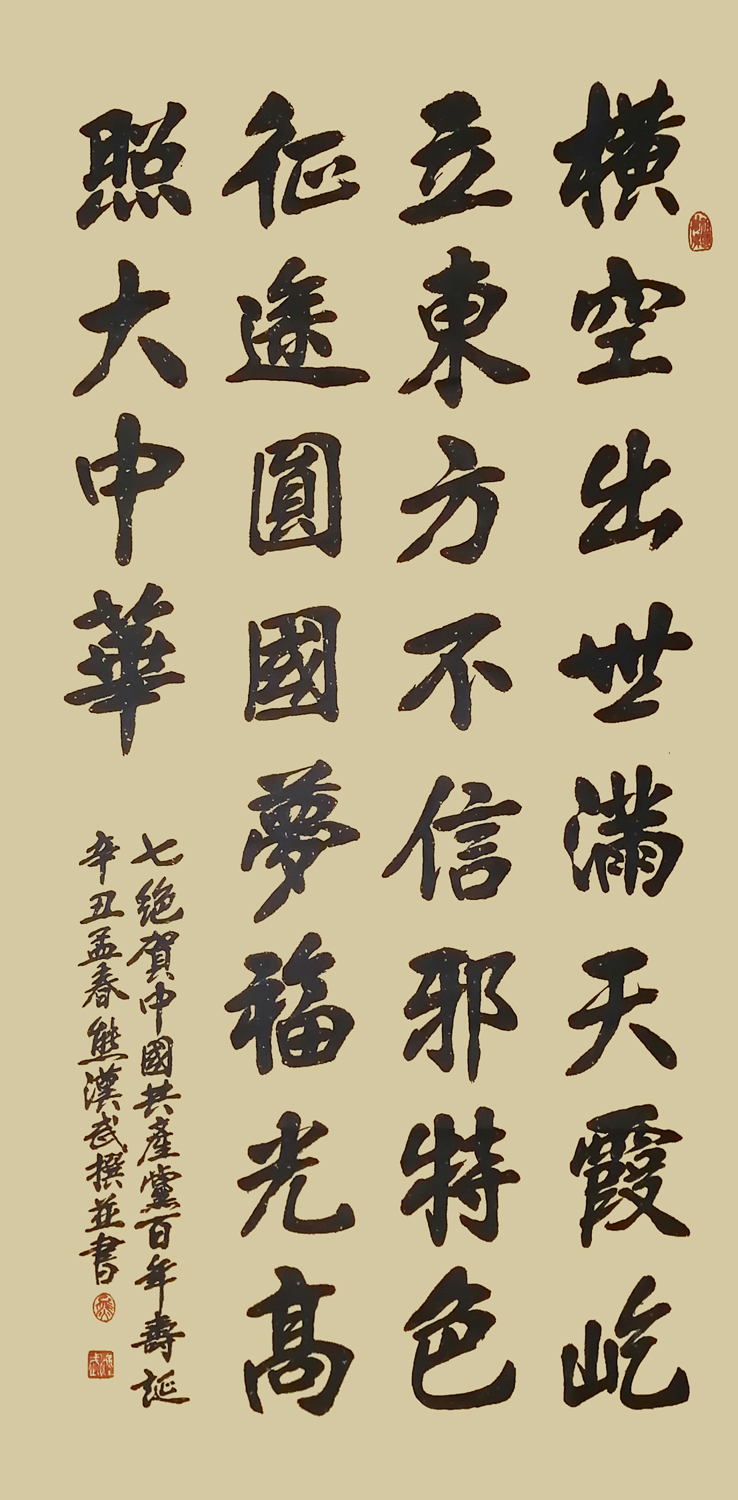 橫空出世滿天霞屹
立東方不信邪特色
征途圓國夢福光高
照大中華
七絶賀中國共産黨百年壽誕
辛丑孟春熊漢武撰並書